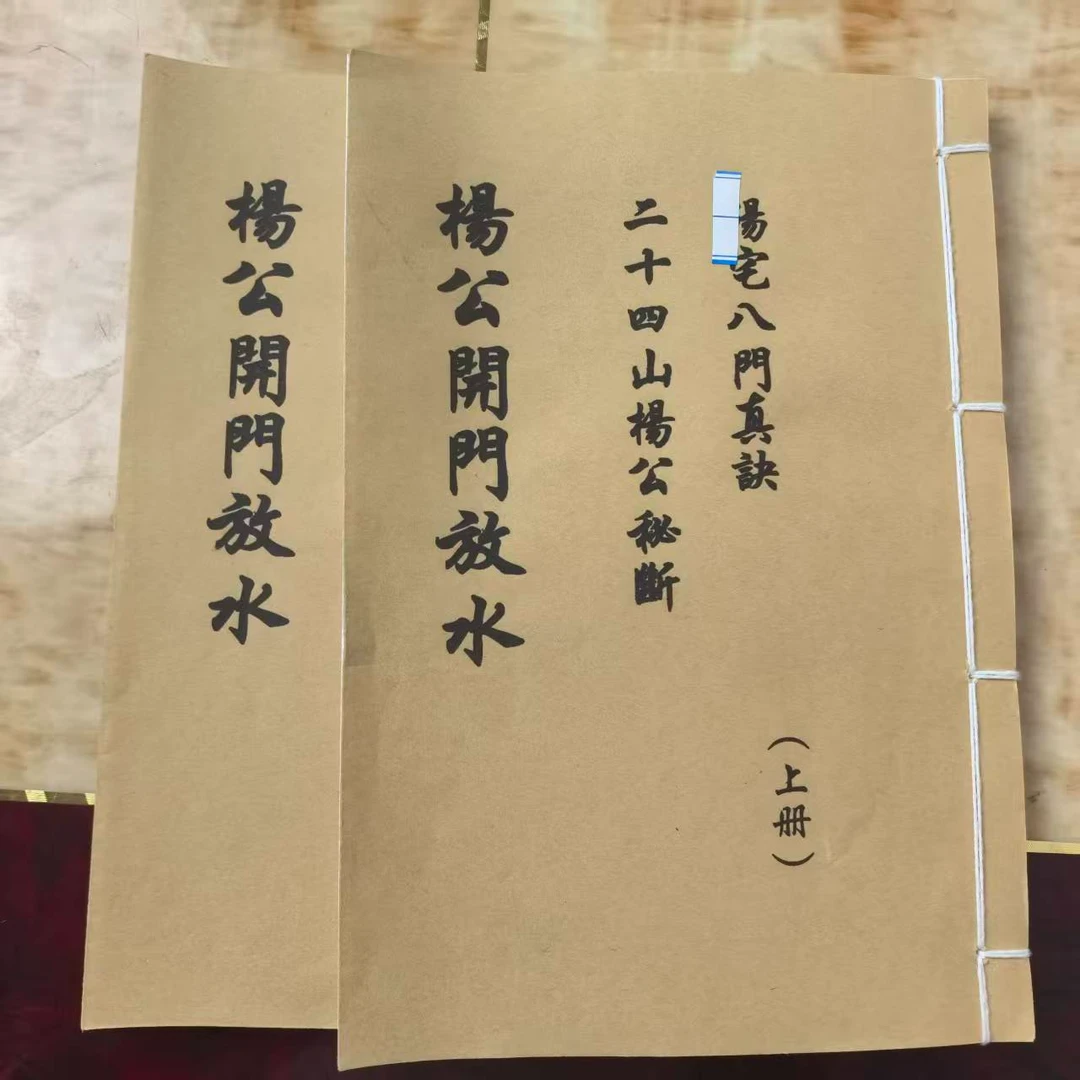 陽宅八門真訣
（上册）
二十四山楊公秘斷
楊公開門放水
楊公開門放水